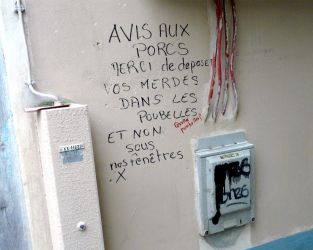 AVIS AUX
PORCS
MERCI de deposer
VOS MERDES
DANS LES
POUBELLES
ET NON
SOUS
nos FENÊTRES
X